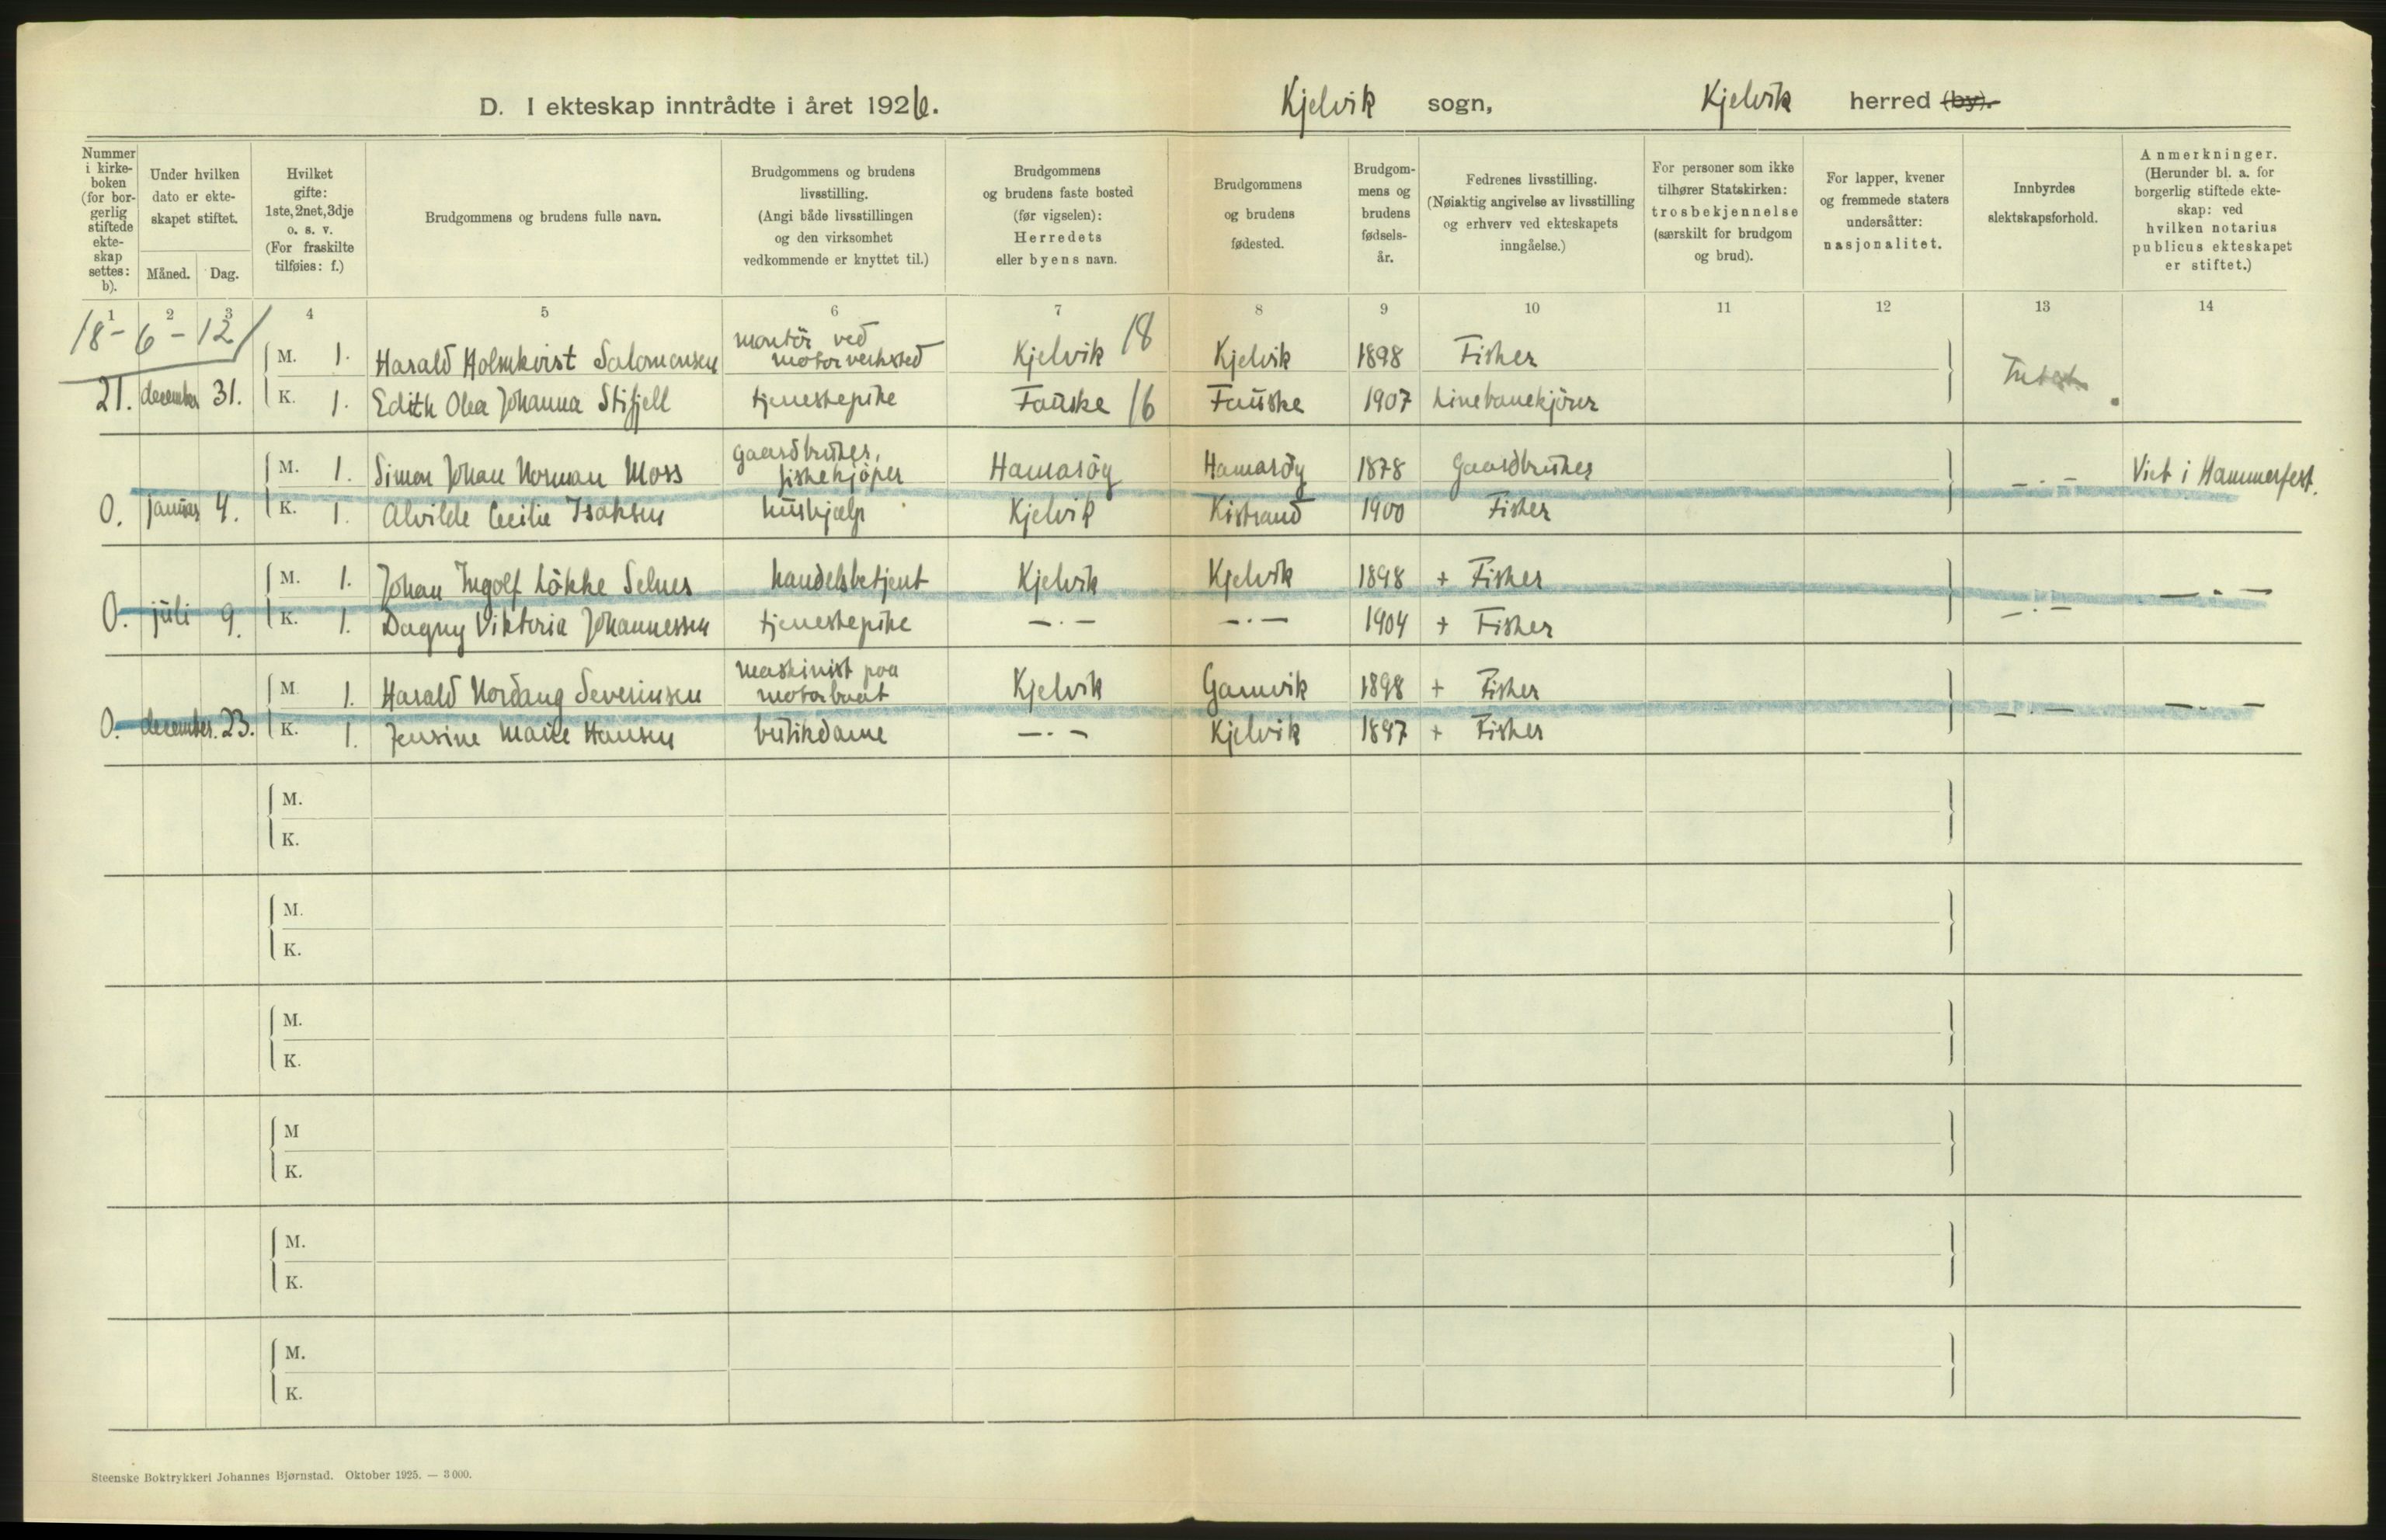 D. I ekteskap inntrådte i året 1926. Kjelvik sogn, Kjelvik herred (by).
Nummer i kirkeboken (for borgerlig stiftede ekteskap settes: b).
Under hvilken dato er ekteskapet stiftet.
Måned. Dag.
Hvilket gifte: 1ste, 2net, 3dje o. s. v. (For fraskilte tilføies: f.)
Brudgommens og brudens fulle navn.
Brudgommens og brudens livsstilling. (Angi både livsstillingen og den virksomhet vedkommende er knyttet til.)
Brudgommens og brudens faste bosted (før vigselen): Herredets eller byens navn.
Brudgommens og brudens fødested.
Brudgommens og brudens fødselsår.
Fedrenes livsstilling. (Nøiaktig angivelse av livsstilling og erhverv ved ekteskapets inngåelse.)
For personer som ikke tilhører Statskirken: trosbekjennelse (særskilt for brudgom og brud).
For lapper, kvener og fremmede staters undersåtter: nasjonalitet.
Innbyrdes slektskapsforhold.
Anmerkninger. (Herunder bl. a. for borgerlig stiftede ekteskap: ved hvilken notarius publicus ekteskapet er stiftet.)
1 2 3 4 5 6 7 8 9 10 11 12 13 14
18 - 6 - 12
M. 1. Harald Holmkvist Salomonsen montör ved motorverksted Kjelvik 18 Kjelvik 1898 Fisker Intet
21. december 31. K. 1. Edith Olea Johanna Stifjell tjenestepike Fauske 16 Fauske 1907 Linebanekjörer
M. 1. Simon Johan Norman Moss Gaardbruker, fiskekjöper Hamaröy Hamaröy 1878 Gaardbruker — . — Viet i Hammerfest.
0. januar 4. K. 1. Alvilde Cecilie Isaksen hushjælp Kjelvik Kistrand 1900 Fisker
M. 1. Johan Ingolf Lökke Selnes handelsbetjent Kjelvik Kjelvik 1898 + Fisker — . — — . —
0. juli 9. K. 1. Dagny Viktoria Johannessen tjenestepike — . — — . — 1904 + Fisker
M. 1. Harald Nordang Severinsen maskinist paa motorbaat Kjelvik Gamvik 1898 + Fisker — . — — . —
0. december. 23. K. 1. Jensine Marie Hansen butikdame — . — Kjelvik 1897 + Fisker
M.
K.
M.
K.
M.
K.
M
K.
M.
K.
M.
K.
Steenske Boktrykkeri Johannes Bjørnstad. Oktober 1925. — 3000.